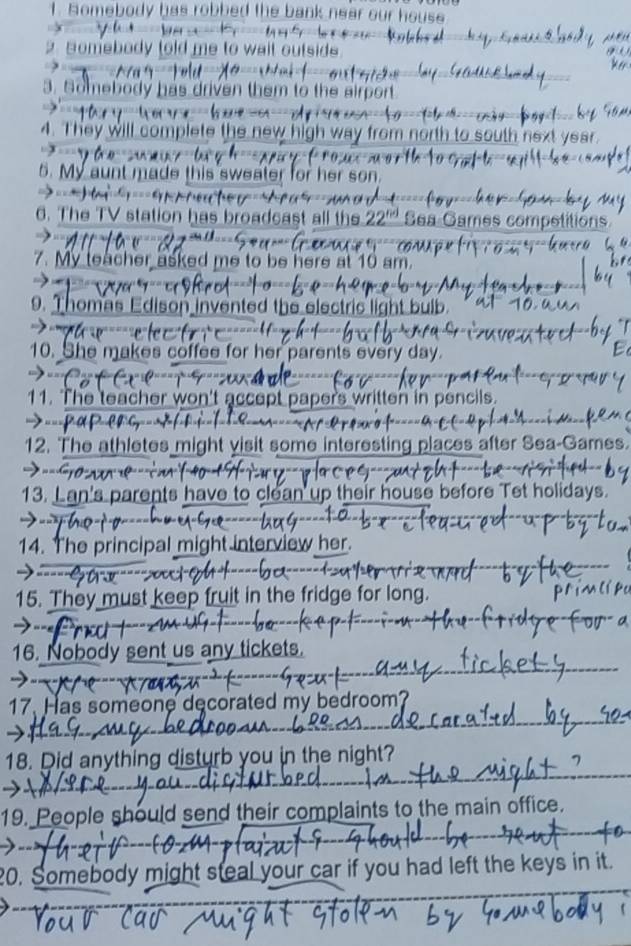 1. Somebody has robbed the bank near our house
has been robbed by somebody
2. Somebody told me to wait outside.
was told to wait outside by somebody
3. Somebody has driven them to the airport.
they have been driven to the air port by som
4. They will complete the new high way from north to south next year.
the new high way from north to south will be complet
5. My aunt made this sweater for her son.
this sweater was made for her son by my
6. The TV station has broadcast all the 22nd Sea Games competitions.
All the 22nd Sea Games competitions have
7. My teacher asked me to be here at 10 am.
I was asked to be here by My teacher
at 10. am
9. Thomas Edison invented the electric light bulb.
The electric light bulb was invented by T
10. She makes coffee for her parents every day.
Coffee is made for her parent every
11. The teacher won't accept papers written in pencils.
papers written in penc
12. The athletes might visit some interesting places after Sea-Games.
some places might be visited by
13. Lan's parents have to clean up their house before Tet holidays.
house has to be cleaned up by Lan
14. The principal might interview her.
might be interviewed by the
principa
15. They must keep fruit in the fridge for long.
Fruit must be kept in the fridge for
16. Nobody sent us any tickets.
were wasn't sent any tickets
17. Has someone decorated my bedroom?
Has my bedroom been decorated by so
18. Did anything disturb you in the night?
Were you disturbed in the night?
19. People should send their complaints to the main office.
their complaints should be sent to
20. Somebody might steal your car if you had left the keys in it.
Your car might stolen by somebody i